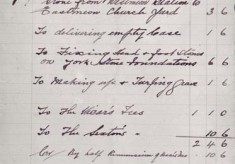 Stone from Petersfield Station to
Eastmeon Church Yard 3 6
To delivering empty case 1 6
To Fixing Head & foot Stones
on York Stone Foundations 6 6
To Making up & Turfing Grave 1 6
To The Vicar's Fees 1 1 0
To The Sextons " 10 6
2 4 6
By half Remission of 10 6